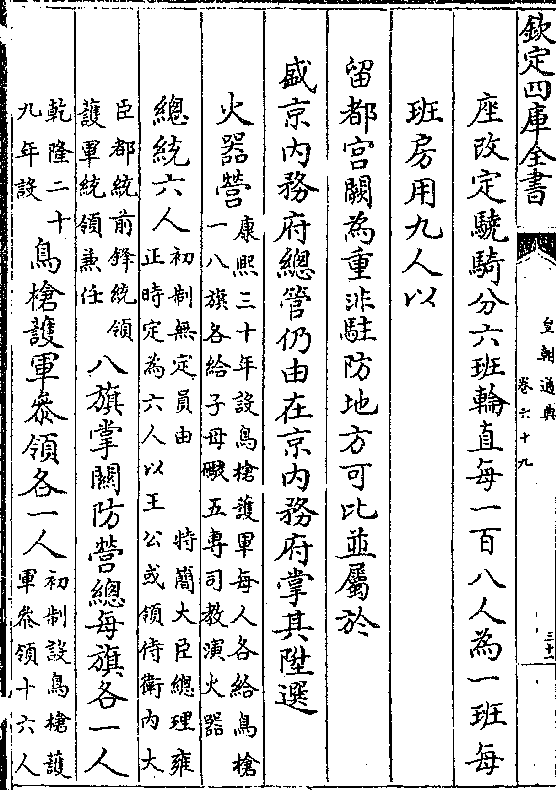 欽定四庫全書
皇朝通典
卷六十九
三十
座改定驍騎分六班輪直每一百八人為一班每
班房用九人以
留都宮闕為重非駐防地方可比並屬於
盛京內務府總管仍由在京內務府掌其陞選
火器營康熙三十年設鳥槍護軍每人各給鳥槍
一八旗各給子母礮五專司教演火器
總統六人初制無定員由 特簡大臣總理雍
正時定為六人以王公或領侍衛內大
臣都統前鋒統領
護軍統領兼任八旗掌關防營總每旗各一人
乾隆二十
九年設鳥槍護軍叅領各一人初制設鳥槍護
軍叅領十六人